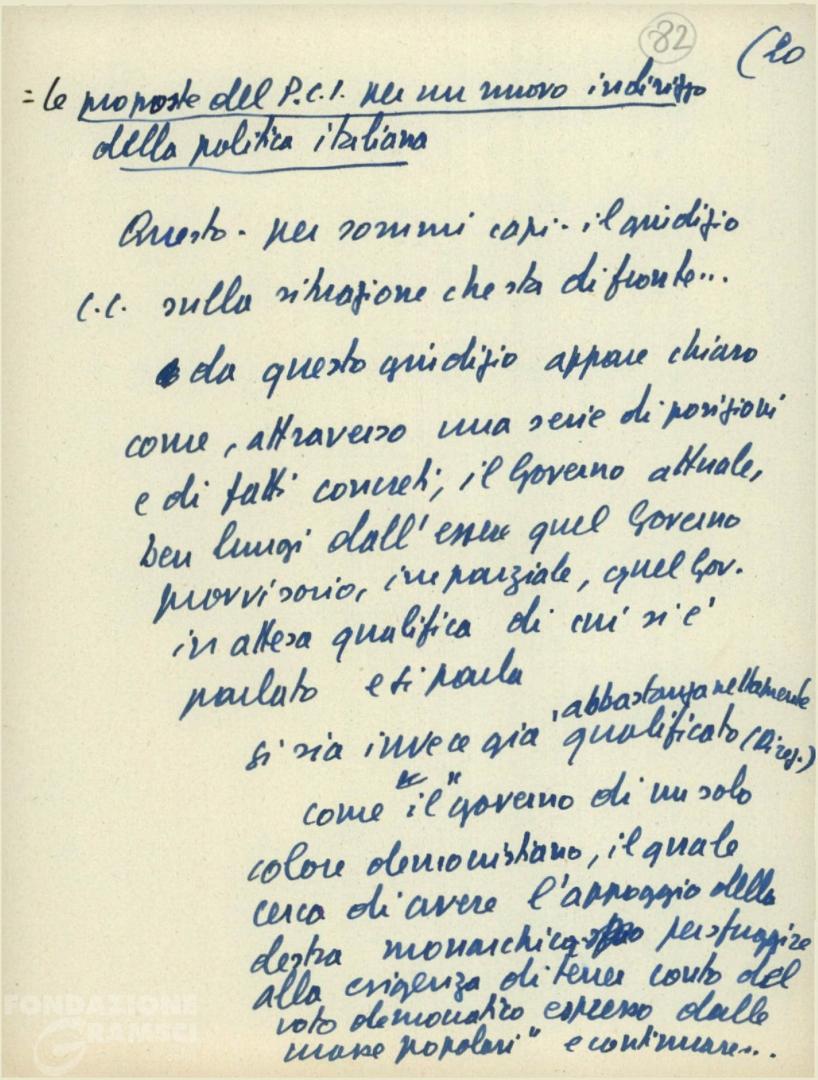 82
(20
= le proposte del P.C.I. per un nuovo indirizzo
della politica italiana
Questo - per sommi capi - il giudizio
C.C. sulla situazione che sta di fronte...
da questo giudizio appare chiaro
come, attraverso una serie di posizioni
e di fatti concreti, il Governo attuale,
ben lungi dall'essere quel Governo
provvisorio, imparziale, quel Gov.
in attesa qualifica di cui si è
parlato e si parla
abbastanza nettamente
si sia invece già qualificato (Direz.)
come "il" governo di un solo
colore democristiano, il quale
cerca di avere l'appoggio della
destra monarchica per sfuggire
alla esigenza di tener conto del
voto democratico espresso dalle
masse popolari" e continuare...
FONDAZIONE
GRAMSCI